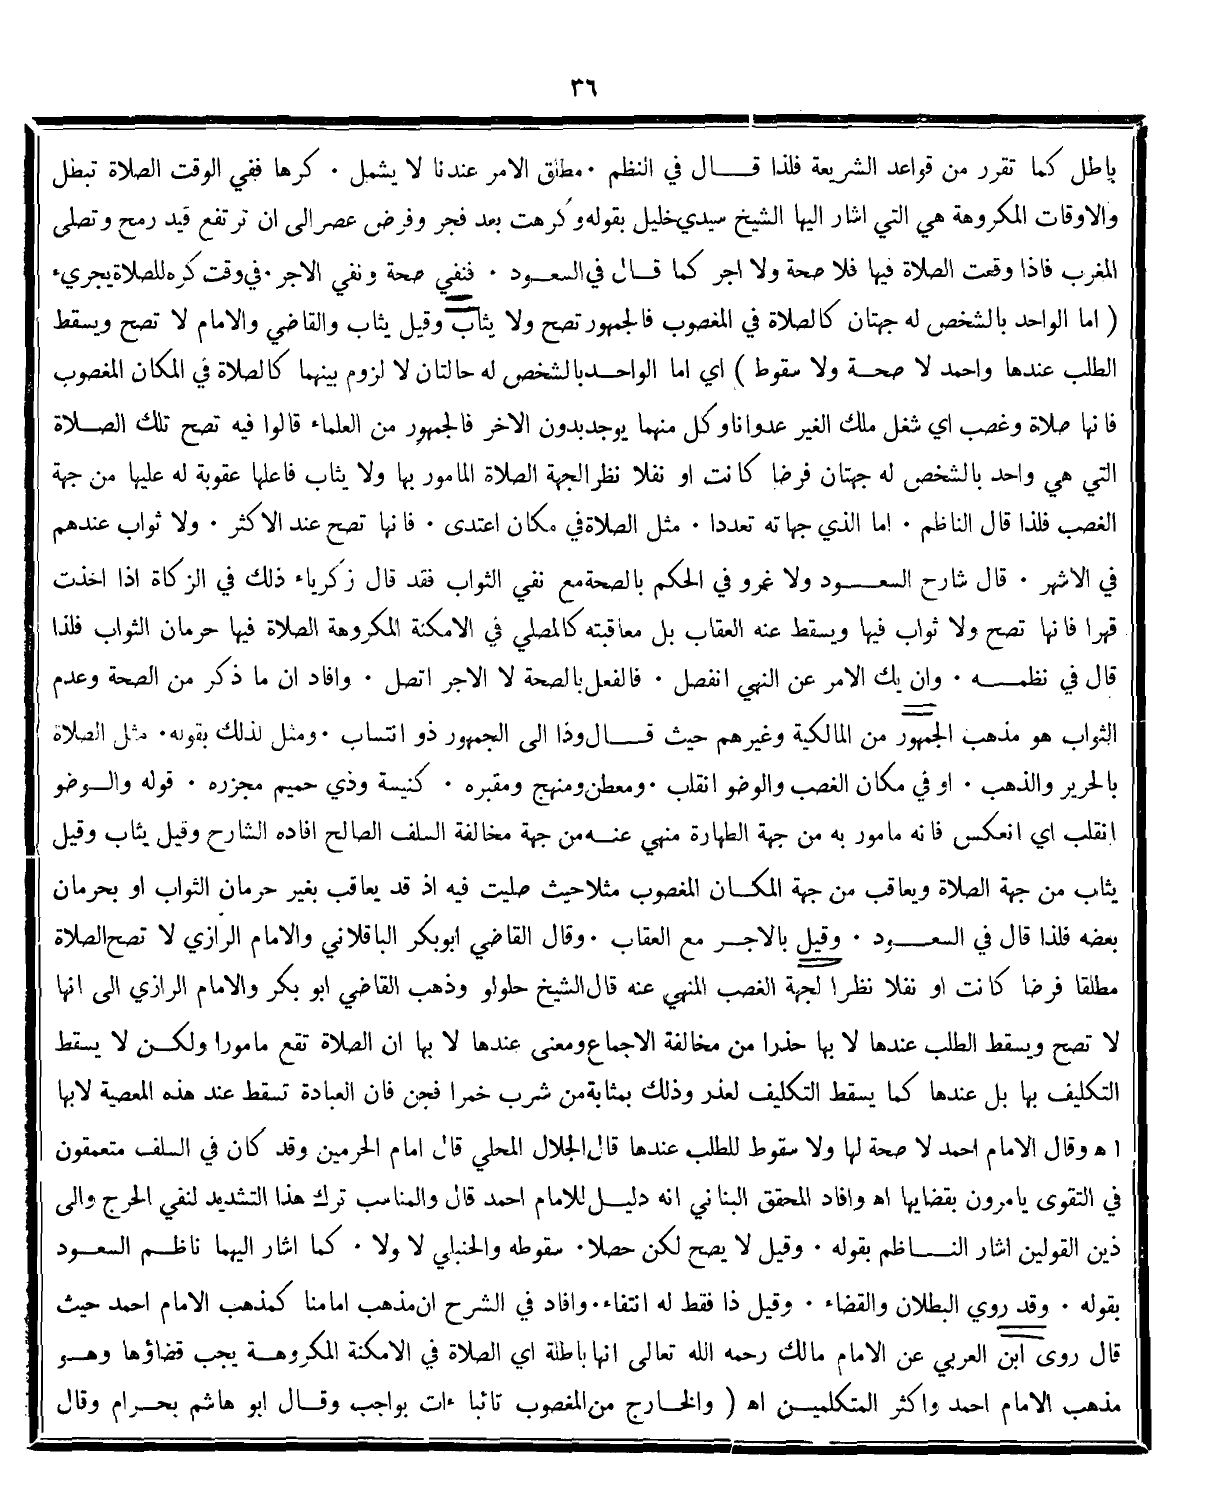 ٣٦
باطل كما تقرر من قواعد الشريعة فلذا قال في النظم ٠ مطلق الامر عندنا لا يشمل ٠ كرها ففي الوقت الصلاة تبطل
والاوقات المكروهة هي التي اشار اليها الشيخ سيدي خليل بقوله وكرهت بعد فجر وفرض عصر الى ان ترتفع قيد رمح وتصلى
المغرب فاذا وقعت الصلاة فيها فلا صحة ولا اجر كما قال في السعود ٠ فنفي صحة ونفي الاجر ٠ في وقت كره للصلاة يجريء
( اما الواحد بالشخص له جهتان كالصلاة في المغصوب فالجمهور تصح ولا يثاب وقيل يثاب والقاضي والامام لا تصح ويسقط
الطلب عندها واحمد لا صحة ولا سقوط ) اي اما الواحد بالشخص له حالتان لا لزوم بينهما كالصلاة في المكان المغصوب
فانها صلاة وغصب اي شغل ملك الغير عدوانا وكل منهما يوجد بدون الاخر فالجمهور من العلماء قالوا فيه تصح تلك الصلاة
التي هي واحد بالشخص له جهتان فرضا كانت او نفلا نظر الجهة الصلاة المامور بها ولا يثاب فاعلها عقوبة له عليها من جهة
الغصب فلذا قال الناظم ٠ اما الذي جهاته تعددا ٠ مثل الصلاة في مكان اعتدى ٠ فانها تصح عند الاكثر ٠ ولا ثواب عندهم
في الاشهر ٠ قال شارح السعود ولا غرو في الحكم بالصحة مع نفي الثواب فقد قال زكرياء ذلك في الزكاة اذا اخذت
قهرا فانها تصح ولا ثواب فيها ويسقط عنه العقاب بل معاقبته كالمصلي في الامكنة المكروهة الصلاة فيها حرمان الثواب فلذا
قال في نظمه ٠ وان يك الامر عن النهي انفصل ٠ فالفعل بالصحة لا الاجر اتصل ٠ وافاد ان ما ذكر من الصحة وعدم
الثواب هو مذهب الجمهور من المالكية وغيرهم حيث قال وذا الى الجمهور ذو انتساب ٠ ومثل لذلك بقوله ٠ مثل الصلاة
بالحرير والذهب ٠ او في مكان الغصب والوضو انقلب ٠ ومعطن ومنهج ومقبره ٠ كنيسة وذي حميم مجزره ٠ قوله والوضو
انقلب اي انعكس فانه مامور به من جهة الطهارة منهي عنه من جهة مخالفة السلف الصالح افاده الشارح وقيل يثاب وقيل
يثاب من جهة الصلاة ويعاقب من جهة المكان المغصوب مثلا حيث صليت فيه اذ قد يعاقب بغير حرمان الثواب او بحرمان
بعضه فلذا قال في السعود ٠ وقيل بالاجر مع العقاب ٠ وقال القاضي ابو بكر الباقلاني والامام الرازي لا تصح الصلاة
مطلقا فرضا كانت او نفلا نظرا لجهة الغصب المنهي عنه قال الشيخ حلولو وذهب القاضي ابو بكر والامام الرازي الى انها
لا تصح ويسقط الطلب عندها لا بها حذرا من مخالفة الاجماع ومعنى عندها لا بها ان الصلاة تقع مامورا ولكن لا يسقط
التكليف بها بل عندها كما يسقط التكليف لعذر وذلك بمثابة من شرب خمرا فجن فان العبادة تسقط عند هذه المعصية لابها
اه وقال الامام احمد لا صحة لها ولا سقوط للطلب عندها قال الجلال المحلي قال امام الحرمين وقد كان في السلف متعمقون
في التقوى يامرون بقضايها اه وافاد المحقق البناني انه دليل للامام احمد قال والمناسب ترك هذا التشديد لنفي الحرج والى
ذين القولين اشار الناظم بقوله ٠ وقيل لا يصح لكن حصلا ٠ سقوطه والحنبلي لا ولا ٠ كما اشار اليهما ناظم السعود
بقوله ٠ وقد روي البطلان والقضاء ٠ وقيل ذا فقط له انتفاء ٠٠ وافاد في الشرح ان مذهب امامنا كمذهب الامام احمد حيث
قال روى ابن العربي عن الامام مالك رحمه الله تعالى انها باطلة اي الصلاة في الامكنة المكروهة يجب قضاؤها وهو
مذهب الامام احمد واكثر المتكلمين اه ( والخارج من المغصوب تائبا ءات بواجب وقال ابو هاشم بحرام وقال